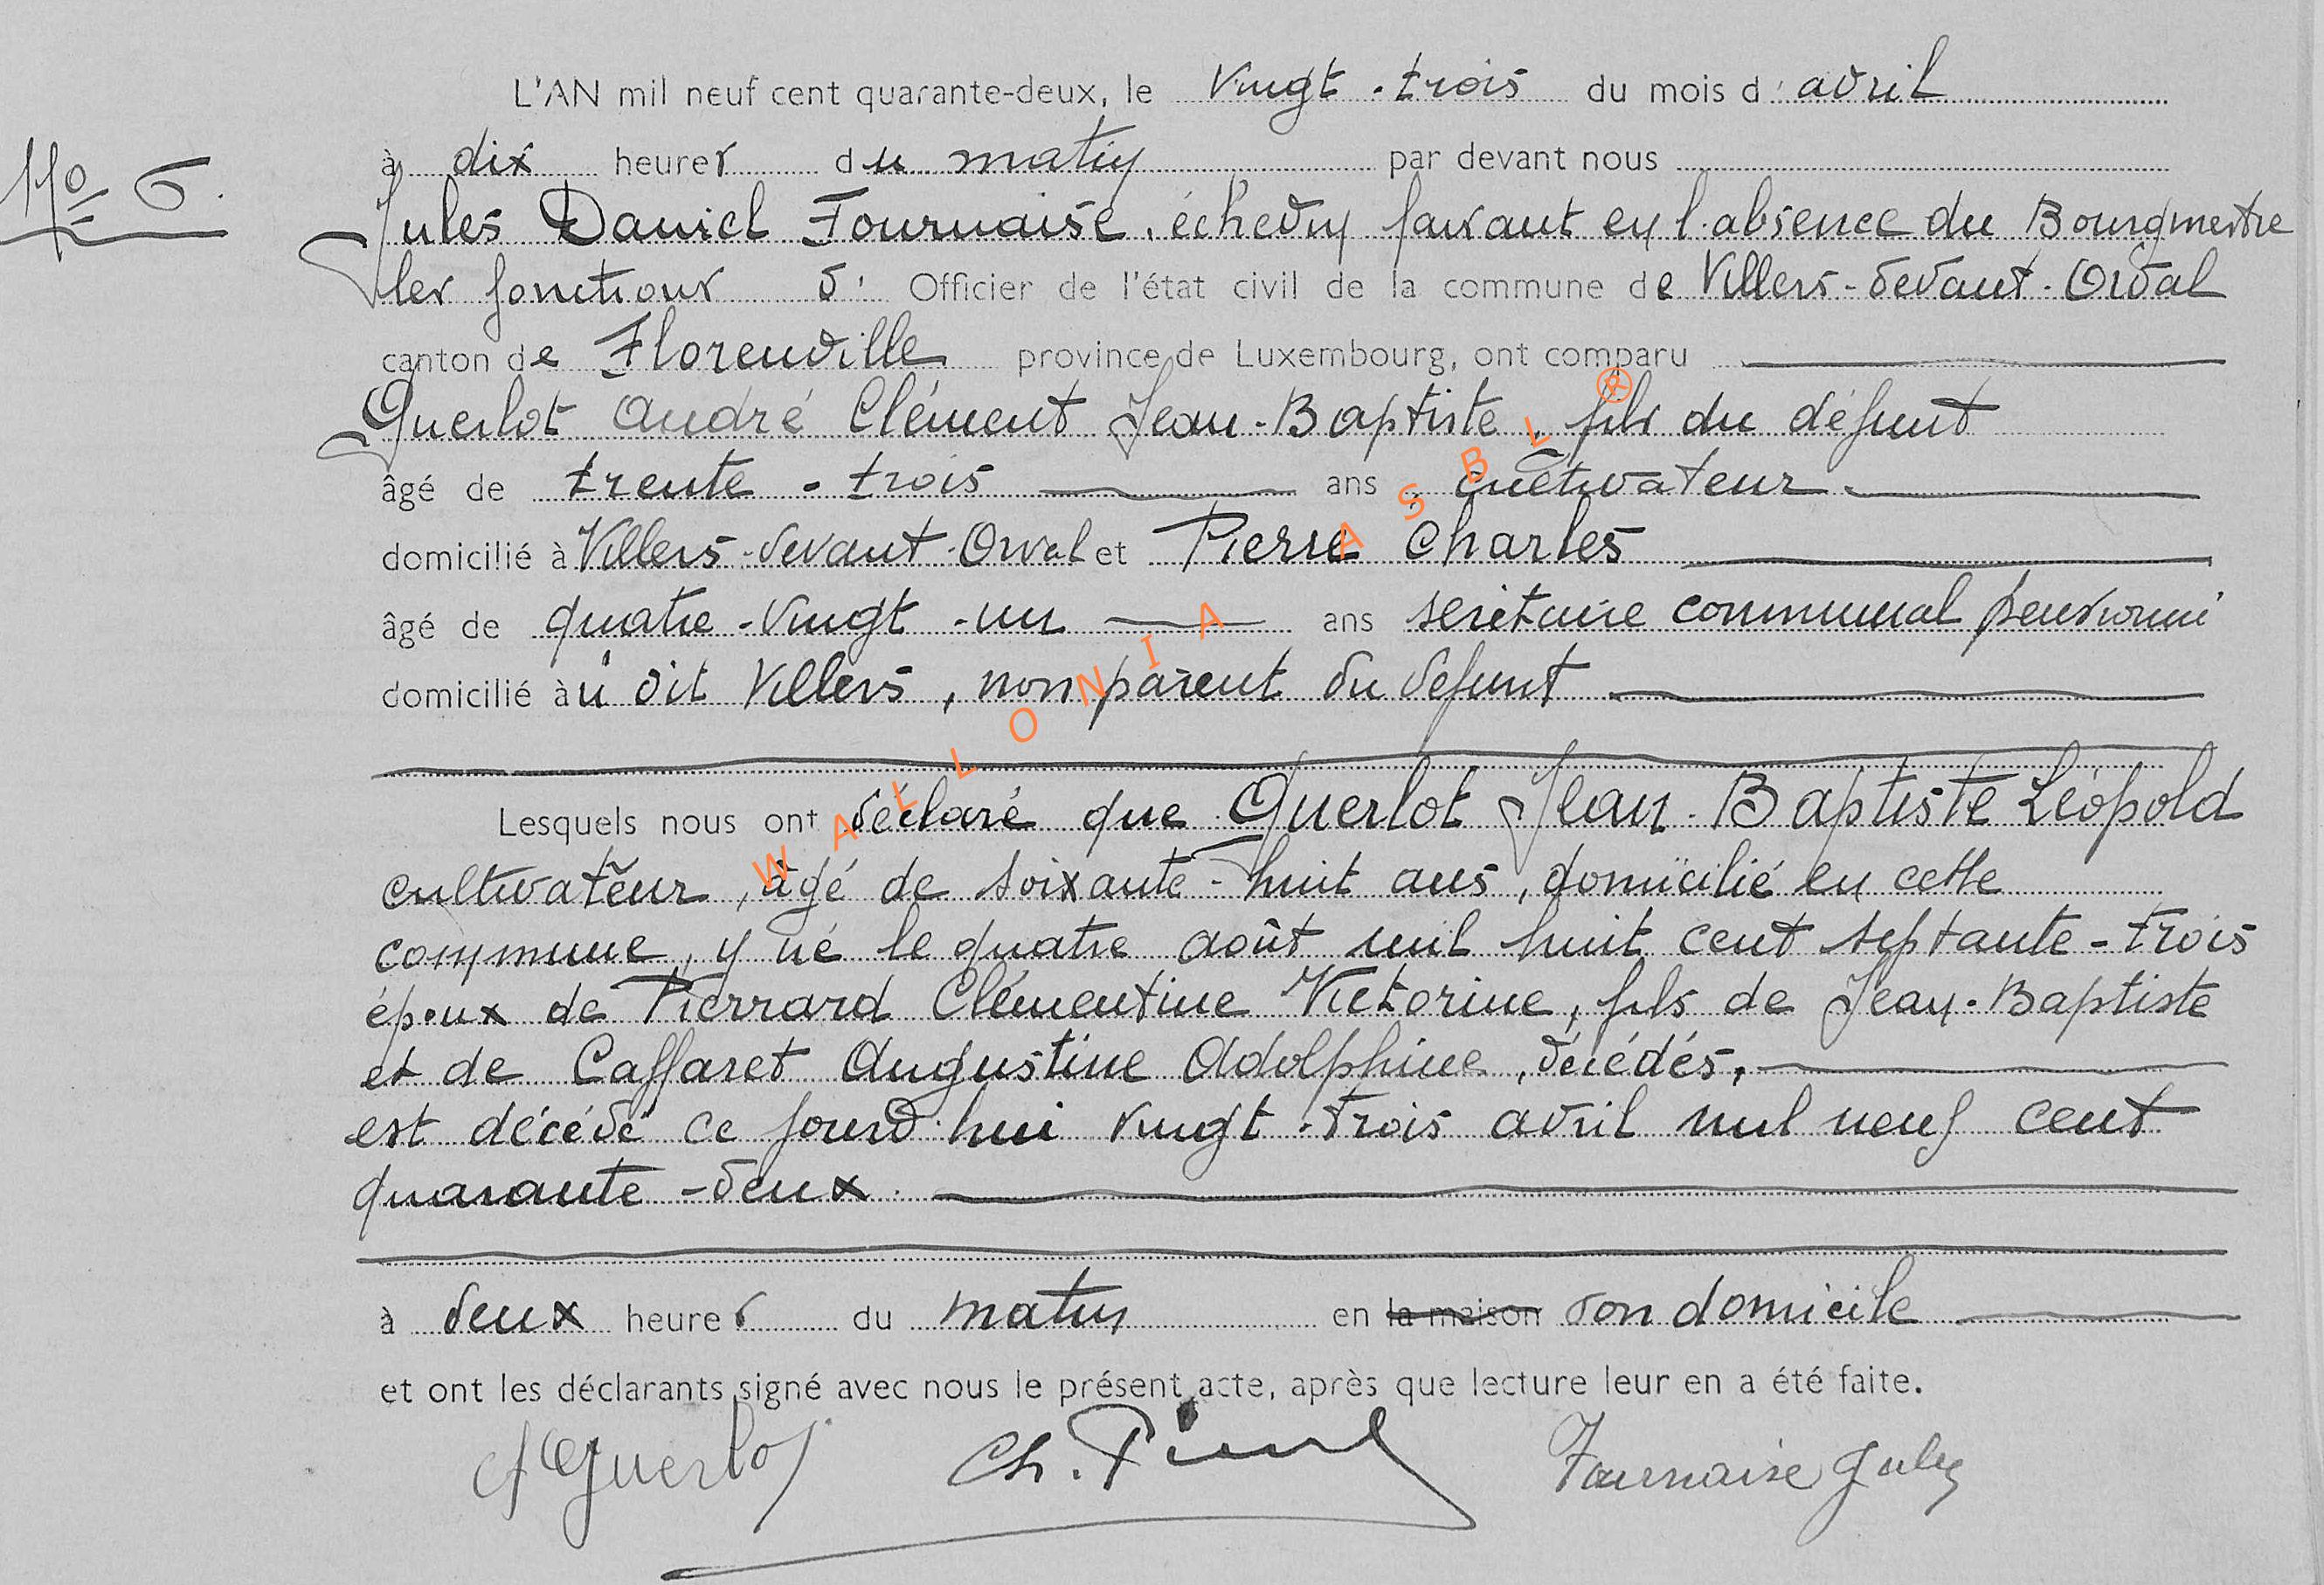 L'AN mil neuf cent quarante-deux, le vingt-trois du mois d'avril
No 6.
à dix heures du matin par devant nous
Jules Daniel Fournaise, échevin faisant en l'absence du Bourgmestre
les fonctions d' Officier de l'état civil de la commune de Villers-devant-Orval
canton de Florenville province de Luxembourg, ont comparu
Guerlot André Clément Jean-Baptiste, fils du défunt
âgé de trente-trois ans cultivateur
domicilié à Villers-devant-Orval et Pierre Charles
âgé de quatre-vingt-un ans secrétaire communal pensionné
domicilié àu dit Villers, non parent du défunt
Lesquels nous ont déclaré que Guerlot Jean-Baptiste Léopold
cultivateur, âgé de soixante-huit ans, domicilié en cette
commune, y né le quatre août mil huit cent septante-trois
époux de Pierrard Clémentine Victorine, fils de Jean-Baptiste
et de Caffaret Augustine Adolphine, décédés,
est décédé ce jourd'hui vingt-trois avril mil neuf cent
quarante-deux.
à deux heures du matin en la maison son domicile
et ont les déclarants signé avec nous le présent acte, après que lecture leur en a été faite.
A Guerlot Ch. Pierre Fournaise Jules
WALLONIA ASBL ®